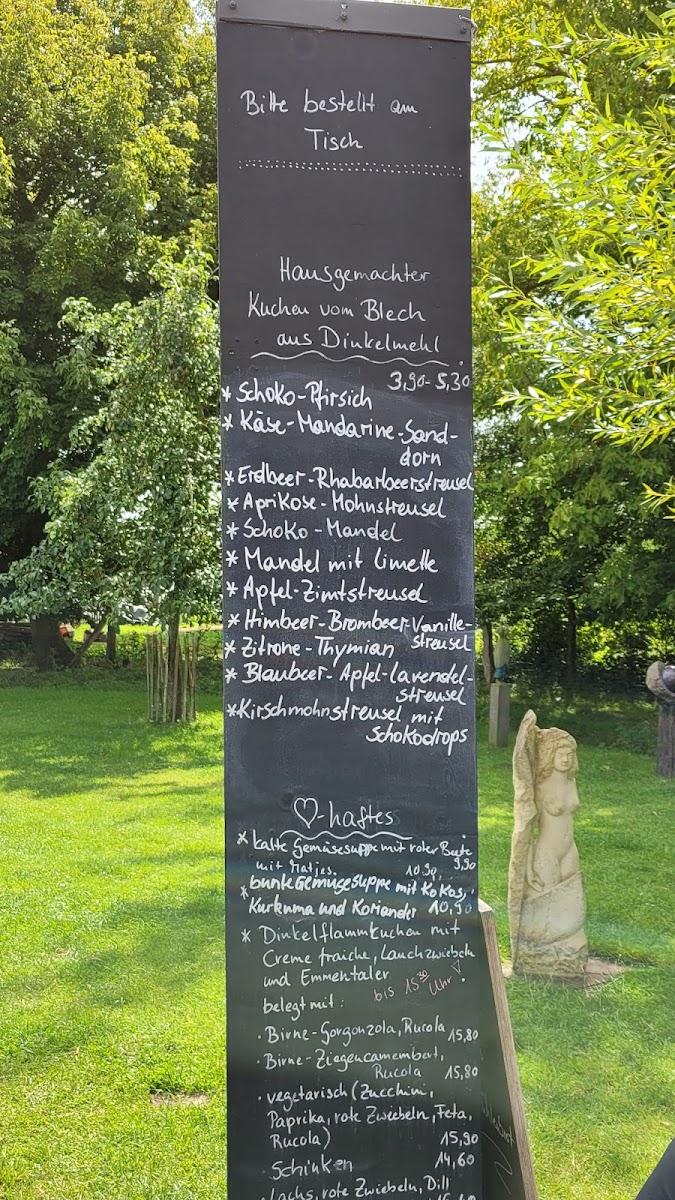 Bitte bestellt am
Tisch
Hausgemachter
Kuchen vom Blech
aus Dinkelmehl
3,90-5,30
* Schoko-Pfirsich
* Käse-Mandarine-Sand-
dorn
* Erdbeer-Rhabarbeerstreusel
* Aprikose-Mohnstreusel
* Schoko-Mandel
* Mandel mit Limette
* Apfel-Zimtstreusel
* Himbeer-Brombeer-Vanille-
streusel
* Zitrone-Thymian
* Blaubeer-Apfel-Lavendel-
streusel
* Kirschmohnstreusel mit
Schokodrops
♡-haftes
* kalte Gemüsesuppe mit roter Beete 9,90
mit Matjes. 10,90
* bunte Gemüsesuppe mit Kokos,
Kurkuma und Koriander 10,90
* Dinkelflammkuchen mit
Creme fraiche, Lauchzwiebeln
und Emmentaler
bis 15³⁰ Uhr!
belegt mit:
· Birne-Gorgonzola, Rucola 15,80
· Birne-Ziegencamembert,
Rucola 15,80
· vegetarisch (Zucchini,
Paprika, rote Zwiebeln, Feta,
Rucola) 15,90
· Schinken 14,60
· Lachs, rote Zwiebeln, Dill